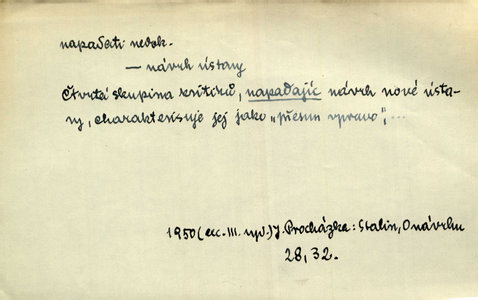 napadati nedok.
— návrh ústavy
Čtvrtá skupina kritiků, napadajíc návrh nové ústa-
vy, charakterisuje jej jako „přesun vpravo“, ...
1950 (exc. III. vyd.) J. Procházka: Stalin, O návrhu
28, 32.